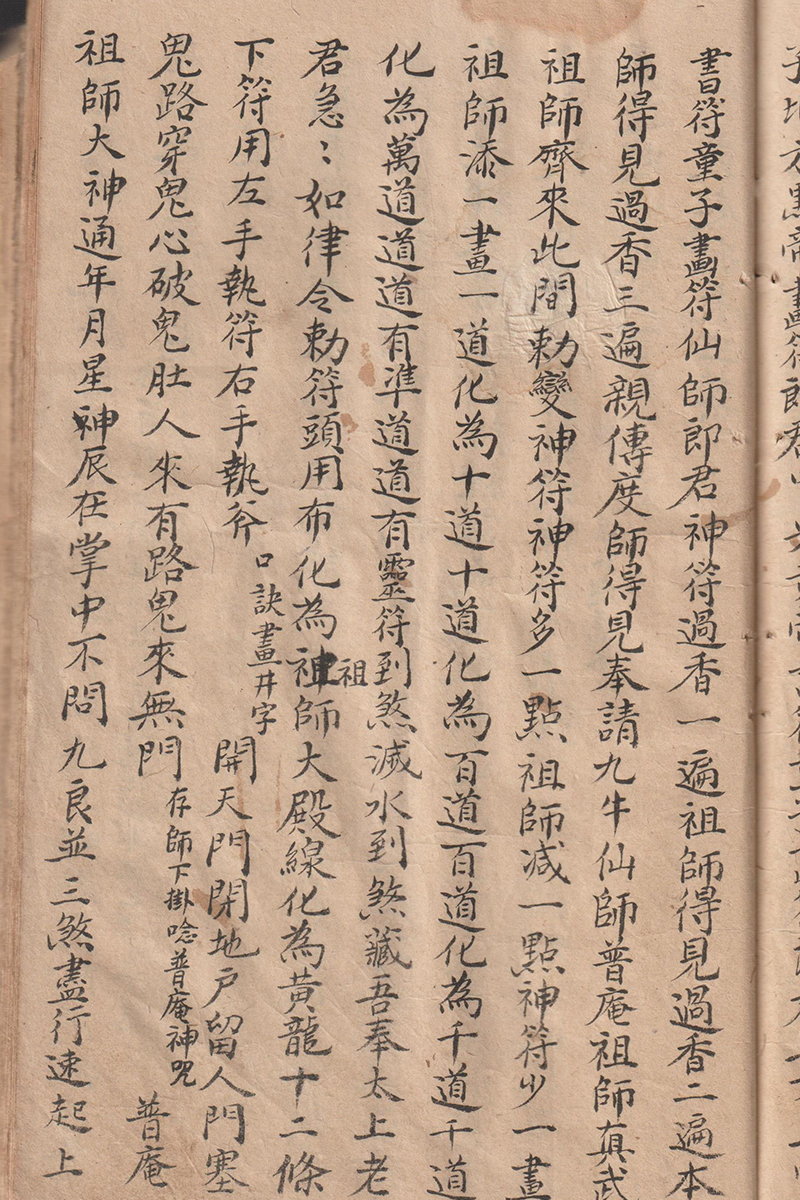 子地方黑帝畫符郎君
書符童子畫符仙師郎君神符過香一遍祖師得見過香二遍本
師得見過香三遍親傳度師得見奉請九牛仙師普庵祖師真武
祖師齊來此間勅變神符神符多一點祖師减一點神符少一畫
祖師添一畫一道化為十道十道化為百道百道化為千道千道
化為萬道道道有準道道有靈符到煞滅水到煞藏吾奉太上老
君急〻如律令勅符頭用布化為祖師大殿線化為黄龍十二條
下符用左手執符右手執斧口訣畫井字開天門閉地户留人門塞
鬼路穿鬼心破鬼肚人來有路鬼來無門存師下掛唸普庵神咒普庵
祖師大神通年月星神辰在掌中不問九良並三煞盡行速起上